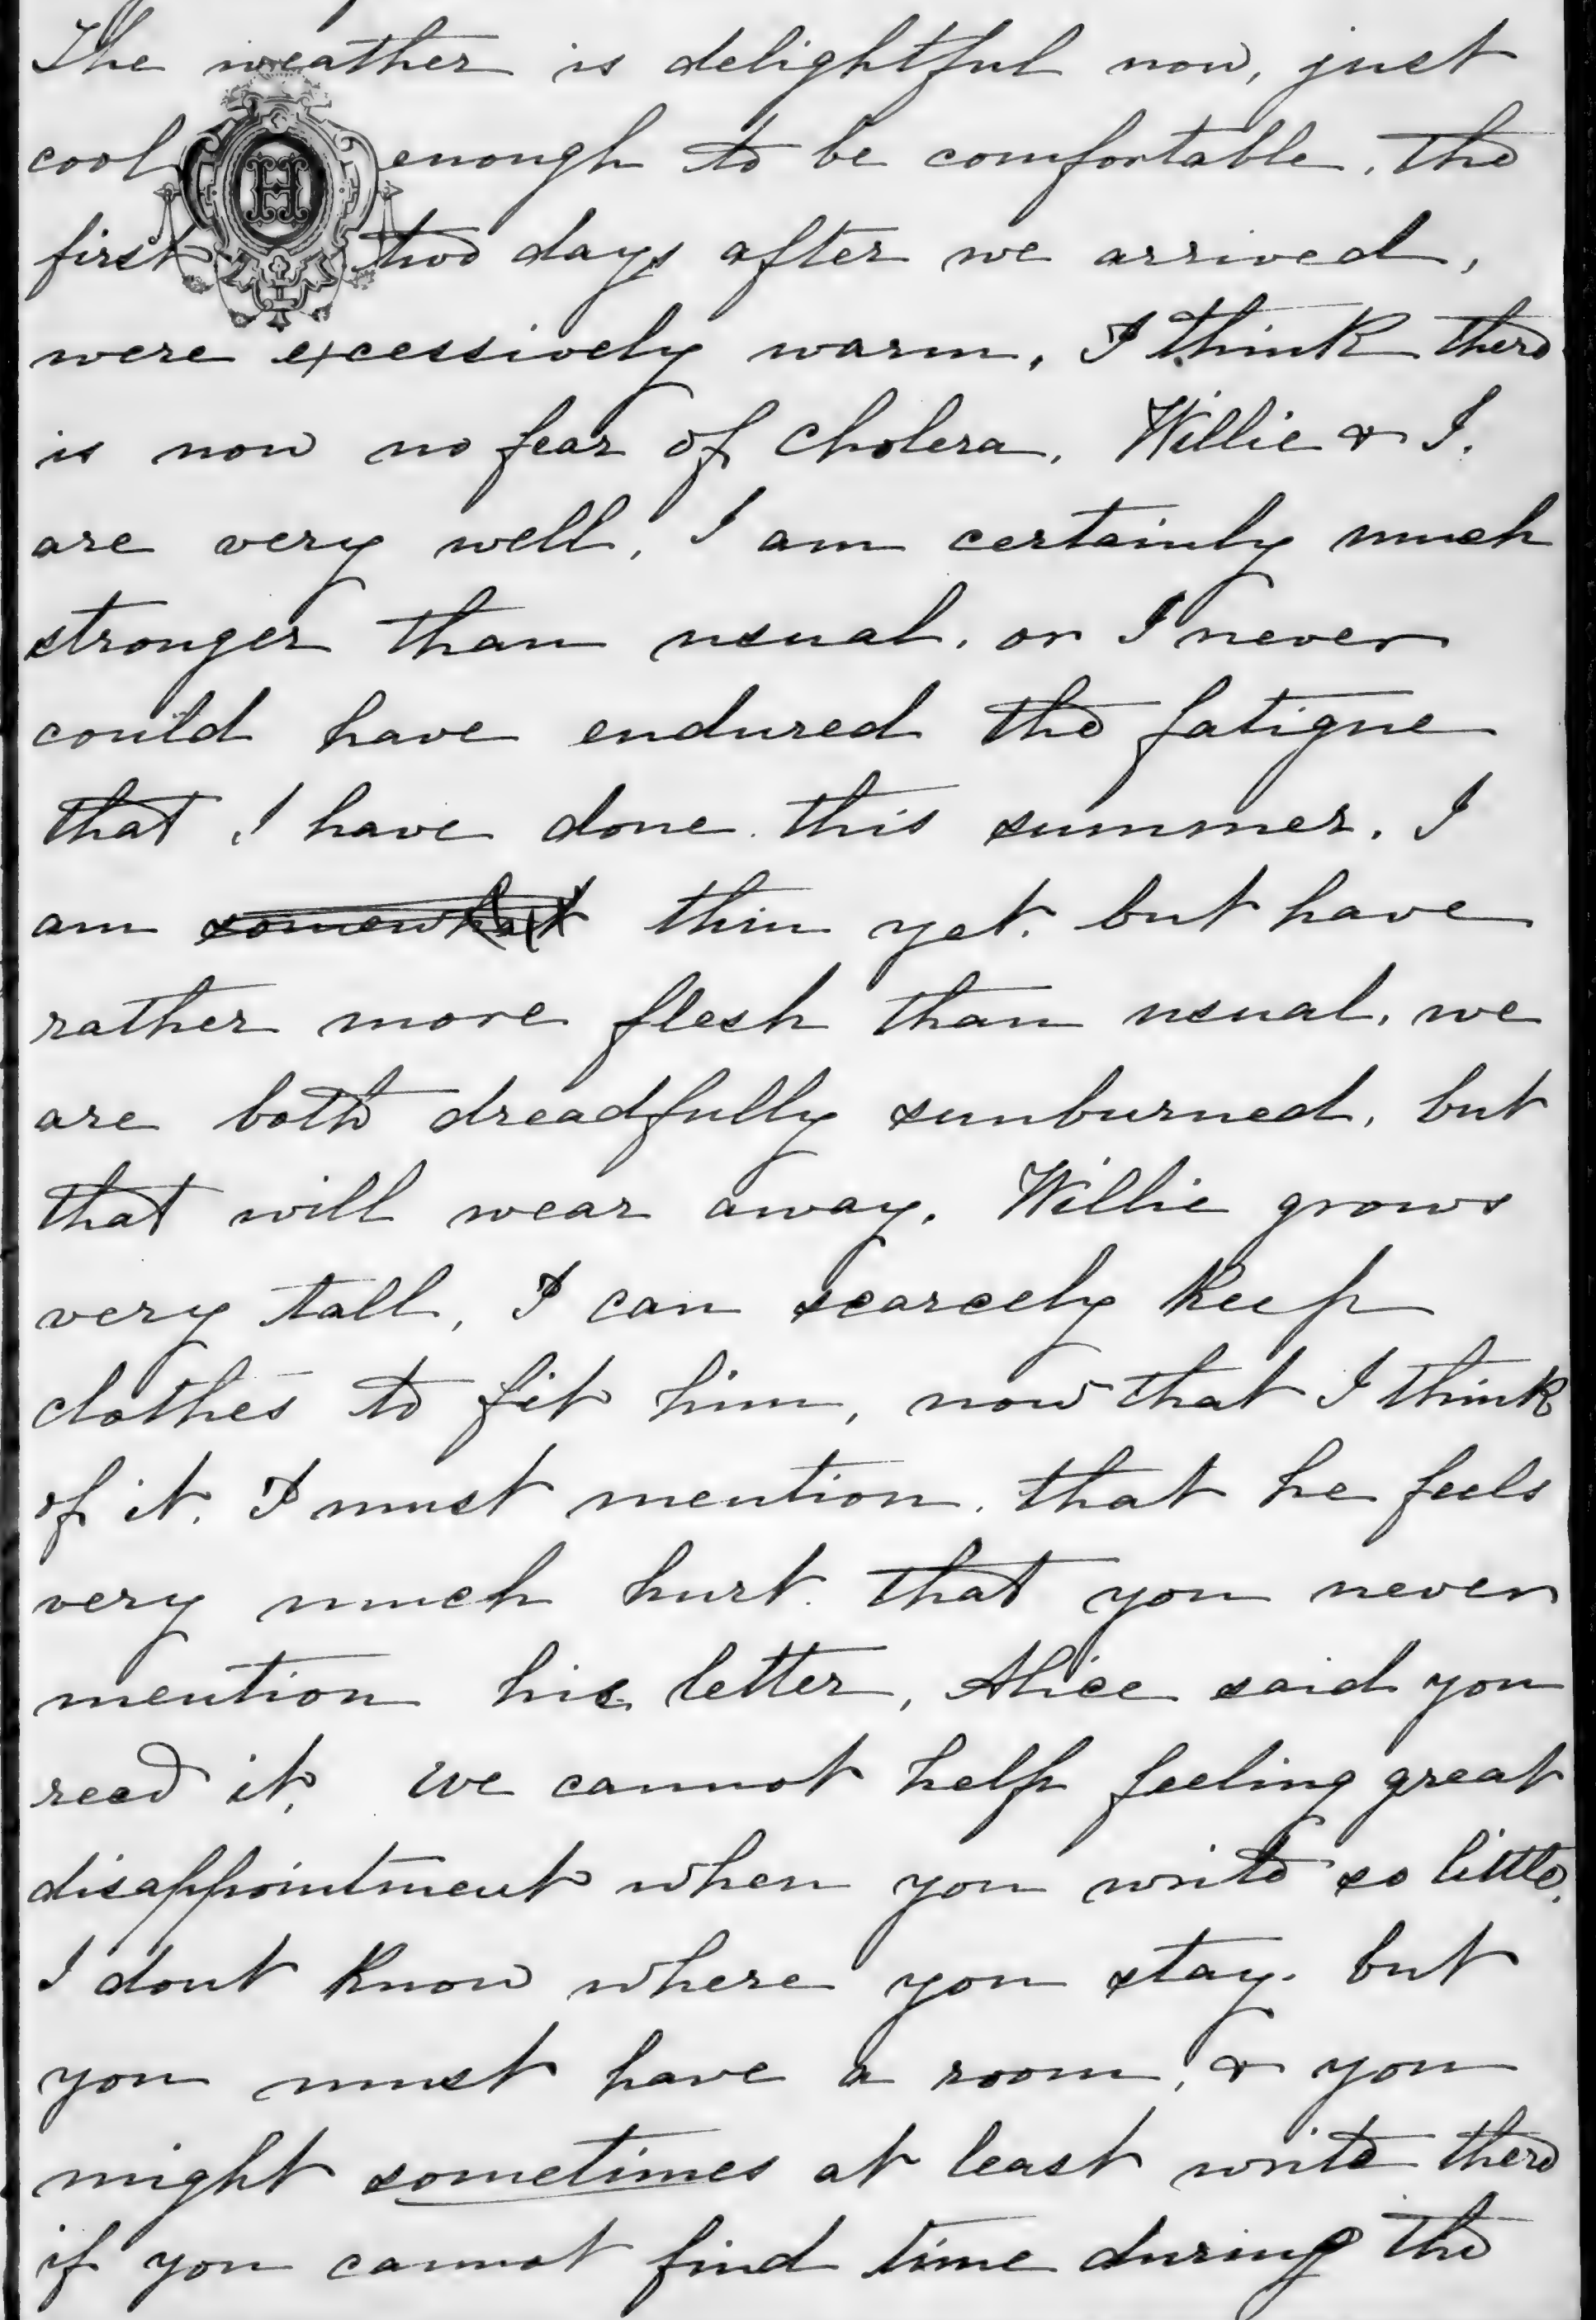 The weather is delightful now, just
cool enough to be comfortable. the
H
first two days after we arrived,
were excessively warm. I think there
is now no fear of cholera. Willie & I.
are very well, I am certainly much
stronger than usual. or I never
could have endured the fatigue
that I have done this summer. I
am somewhat thin yet. but have
rather more flesh than usual. we
are both dreadfully sunburned, but
that will wear away. Willie grows
very tall, I can scarcely keep
clothes to fit him, now that I think
of it. I must mention. that he feels
very much hurt. that you never
mention his letter, Alice said you
recd it, we cannot help feeling great
disappointment when you write so little.
I dont know where you stay. but
you must have a room, & you
might sometimes at least write there
if you cannot find time during the